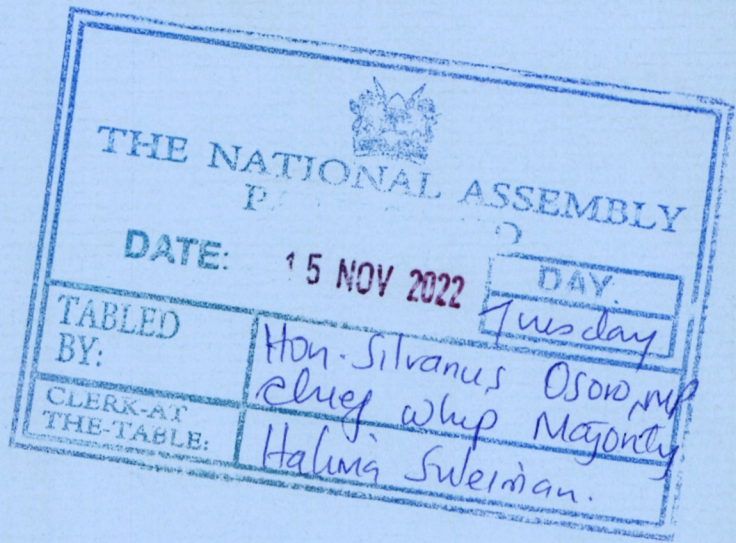 THE NATIONAL ASSEMBLY
DATE: 15 NOV 2022
DAY.
Tuesday
TABLED BY:
Hon. Silvanus Osoro, MP
chief whip Majority
CLERK-AT THE-TABLE:
Halima